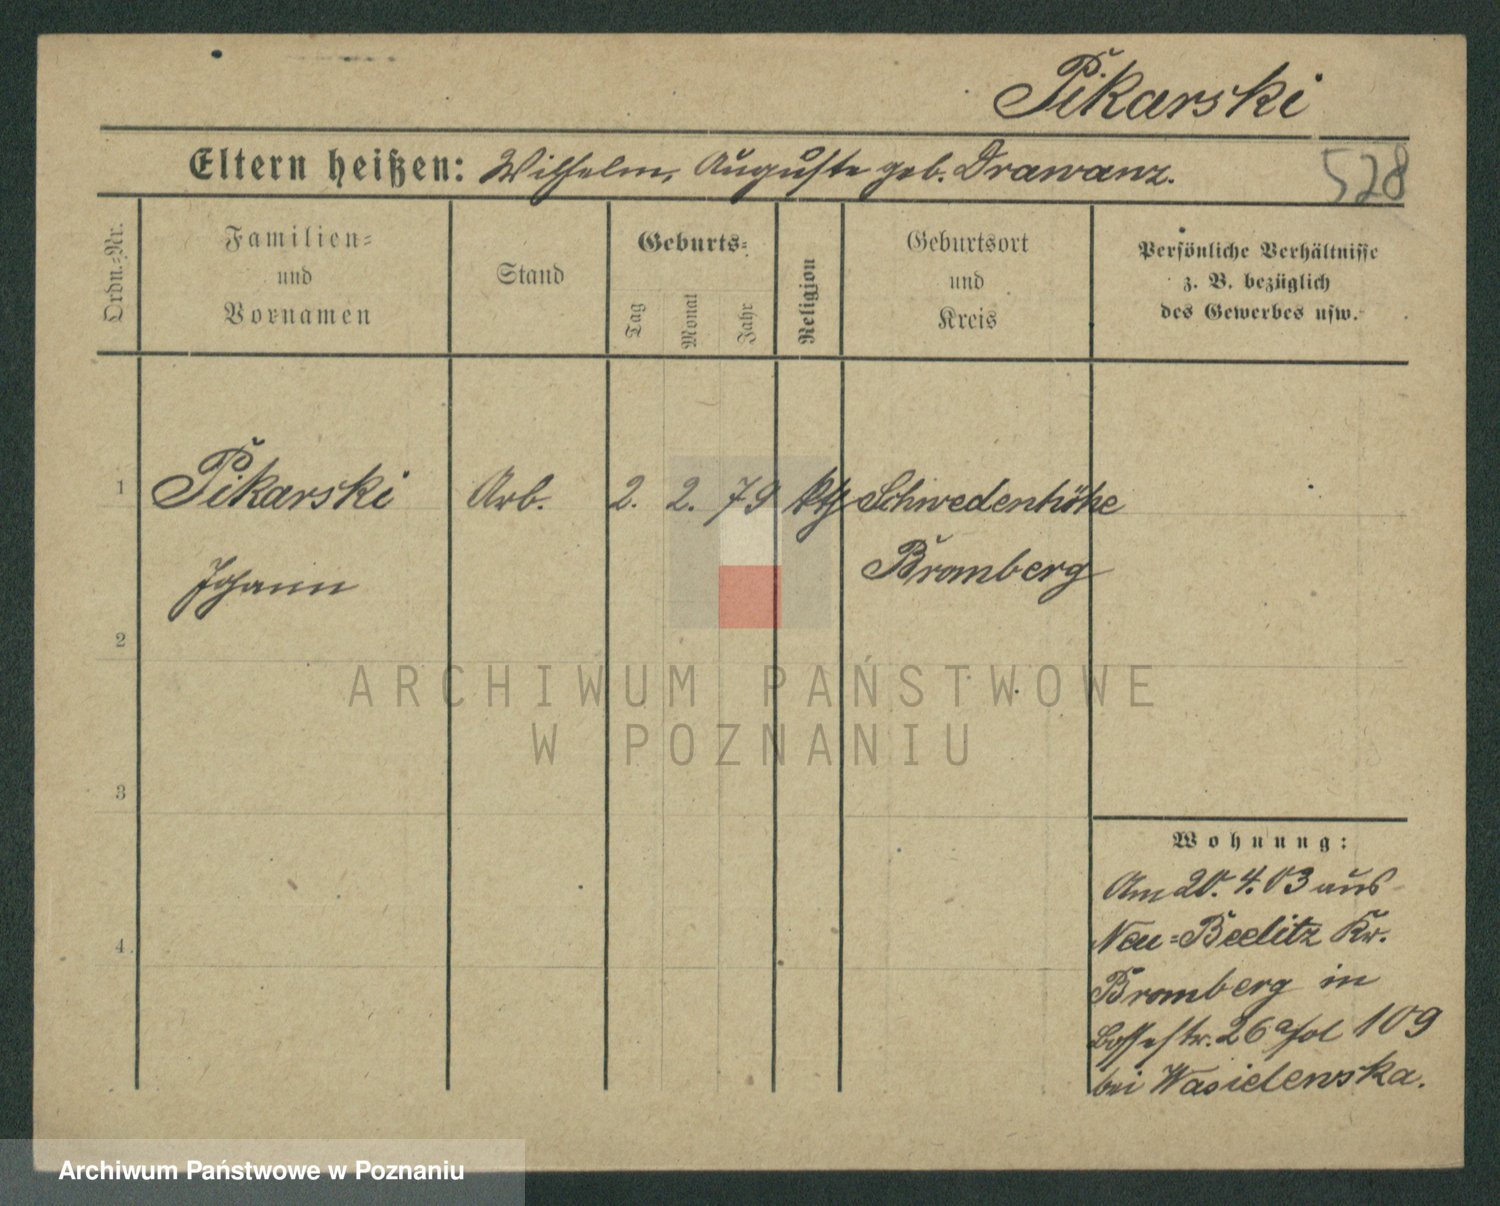 Pikarski
Eltern heißen: Wilhelm, Auguste geb. Drawanz.
528
Ordn.-Nr.
Familien-
und
Vornamen
Stand
Geburts-
Tag
Monat
Jahr
Religion
Geburtsort
und
Kreis
Persönliche Verhältnisse
z. B. bezüglich
des Gewerbes usw.
1 Pikarski Arb. 2. 2. 79 kth Schwedenhöhe
Johann Bromberg
2
3
4
Wohnung:
Am 20. 4. 03 aus
Neu-Beelitz Kr.
Bromberg in
26a fol 109
bei Wasielewska.
ARCHIWUM PAŃSTWOWE
W POZNANIU
Archiwum Państwowe w Poznaniu